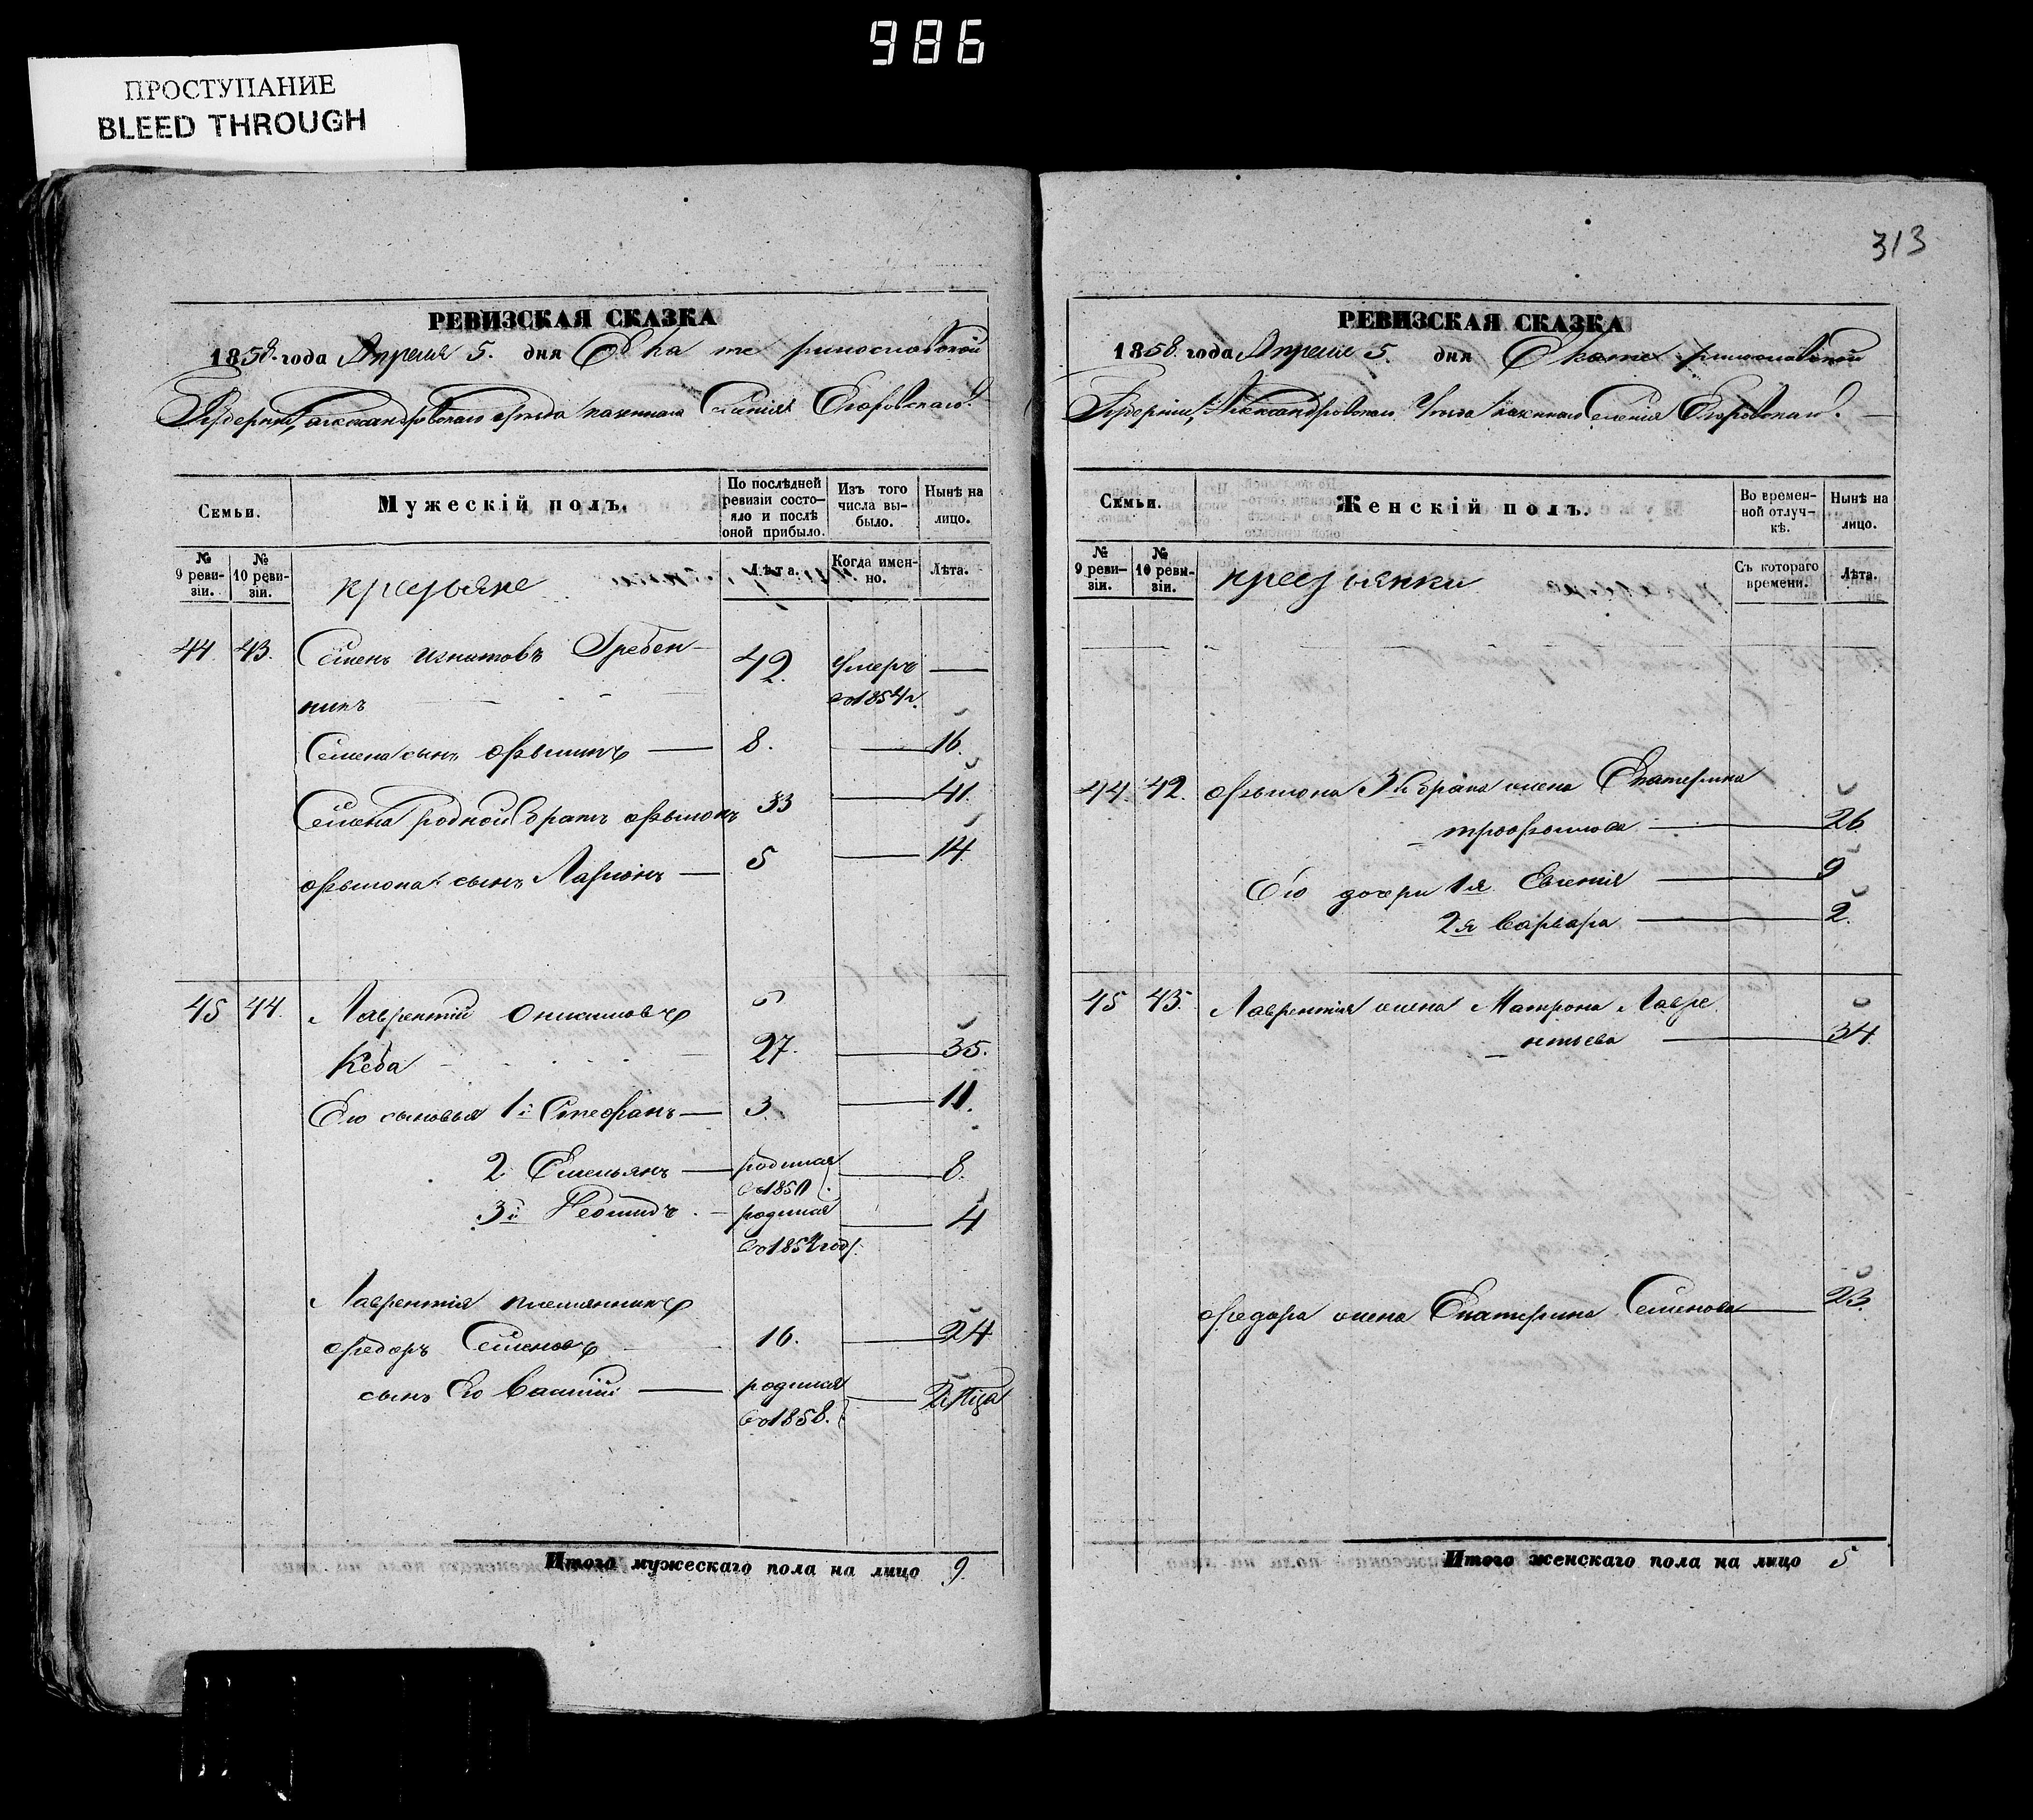 986
ПРОСТУПАНИЕ
BLEED THROUGH
РЕВИЗСКАЯ СКАЗКА
1858 года Апреля 5. дня Екатеринославской
Губерніи, Александровскаго уѣзда казеннаго Селенія Егоровскаго.
Семьи.
Мужескій полъ.
По послѣдней ревизіи состояло и послѣ оной прибыло.
Изъ того числа выбыло.
Нынѣ на лицо.
№ 9 ревизіи.
№ 10 ревизіи.
крестьяне
Лѣта.
Когда именно.
Лѣта.
44. 43. Семенъ Игнатовъ Гребен-
никъ 42. Умеръ —
въ 1854 г.
Семена сынъ Филипъ — 8. — 16.
Семена родной братъ 33 — 41.
сынъ Ларіонъ — 5 — 14
45 44. Лаврентій Онисимовъ
Кеба 27. — 35.
Его сыновья 1й Стефанъ — 3. — 11.
2 Емельянъ — родился — 8.
въ 1850
3й Леонидъ. — родился — 4
въ 1854 год.
Лаврентія племянникъ
Федоръ Семеновъ 16. — 24
сынъ Его Василій — родился —
въ 1858.
Итого мужескаго пола на лицо 9.
313
РЕВИЗСКАЯ СКАЗКА
1858. года Апреля 5. дня Екатеринославской
Губерніи, Александровскаго Уѣзда казеннаго Селенія Егоровскаго. —
Семьи.
Женскій полъ.
Во временной отлучкѣ.
Нынѣ на лицо.
№ 9 ревизіи.
№ 10 ревизіи.
крестьянки
Съ котораго времени.
Лѣта.
44. 42. брака жена Екатерина
Трофимова — 26
Его дочери 1я Евгенія — 9
2я Варвара — 2.
45 43. Лаврентія жена Матрона Лавре
нтьева — 34
Федора жена Екатерина Семенова — 23.
Итого женскаго пола на лицо 5